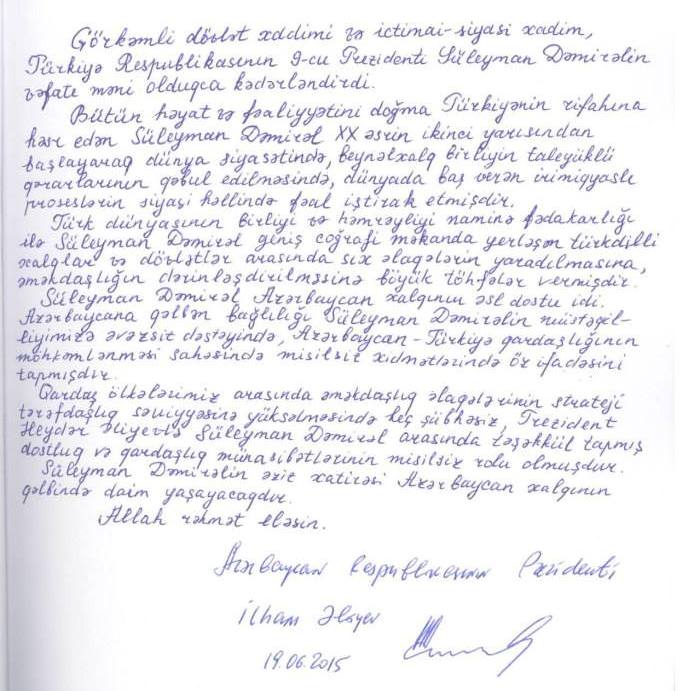 Görkəmli dövlət xadimi və ictimai-siyasi xadim,
Türkiyə Respublikasının 9-cu Prezidenti Süleyman Dəmirəlin
vəfatı məni olduqca kədərləndirdi.
Bütün həyat və fəaliyyətini doğma Türkiyənin rifahına
həsr edən Süleyman Dəmirəl XX əsrin ikinci yarısından
başlayaraq dünya siyasətində, beynəlxalq birliyin taleyüklü
qərarlarının qəbul edilməsində, dünyada baş verən irimiqyaslı
proseslərin siyasi həllində fəal iştirak etmişdir.
Türk dünyasının birliyi və həmrəyliyi naminə fədakarlığı
ilə Süleyman Dəmirəl geniş coğrafi məkanda yerləşən türkdilli
xalqlar və dövlətlər arasında sıx əlaqələrin yaradılmasına,
əməkdaşlığın dərinləşdirilməsinə böyük töhfələr vermişdir.
Süleyman Dəmirəl Azərbaycan xalqının əsl dostu idi.
Azərbaycana qəlbən bağlılığı Süleyman Dəmirəlin müstəqil-
liyimizə əvəzsiz dəstəyində, Azərbaycan-Türkiyə qardaşlığının
möhkəmlənməsi sahəsində misilsiz xidmətlərində öz ifadəsini
tapmışdır.
Qardaş ölkələrimiz arasında əməkdaşlıq əlaqələrinin strateji
tərəfdaşlıq səviyyəsinə yüksəlməsində heç şübhəsiz, Prezident
Heydər Əliyevlə Süleyman Dəmirəl arasında təşəkkül tapmış
dostluq və qardaşlıq münasibətlərinin misilsiz rolu olmuşdur.
Süleyman Dəmirəlin əziz xatirəsi Azərbaycan xalqının
qəlbində daim yaşayacaqdır.
Allah rəhmət eləsin.
Azərbaycan Respublikasının Prezidenti
İlham Əliyev
19.06.2015